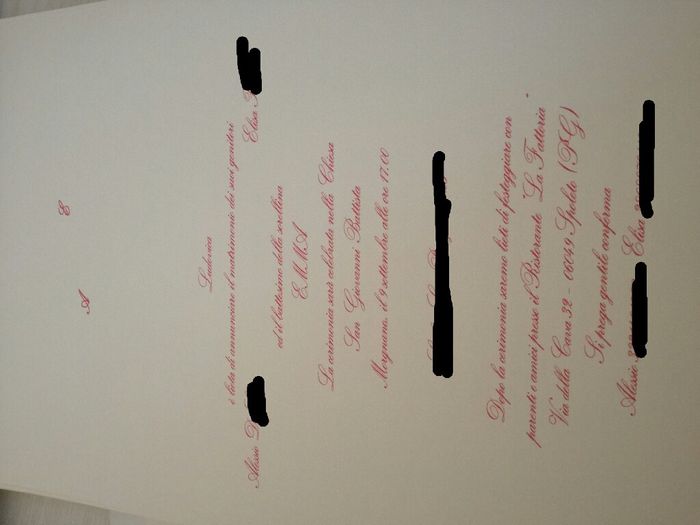 A E
Ludovica
è lieta di annunciare il matrimonio dei suoi genitori
Alessio D Elisa
ed il battesimo della sorellina
EMMA
La cerimonia sarà celebrata nella Chiesa
San Giovanni Battista
Morgnano, il 9 settembre alle ore 17.00
Dopo la cerimonia saremo lieti di festeggiare con
parenti e amici presso il Ristorante "La Fattoria"
Via della Cava 32 - 06049 Spoleto (PG)
Si prega gentile conferma
Alessio Elisa